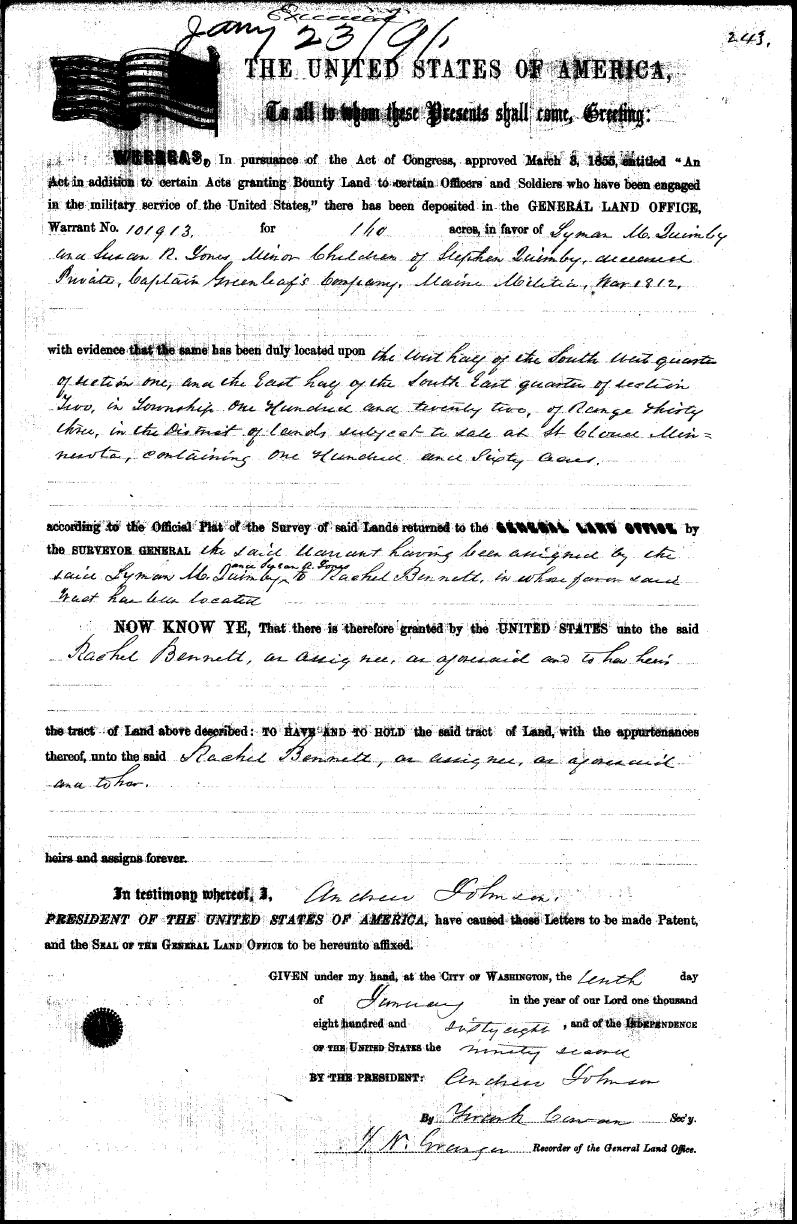 Jany 23/91
243.
THE UNITED STATES OF AMERICA,
To all to whom these Presents shall come, Greeting:
WHEREAS, In pursuance of the Act of Congress, approved March 3, 1855, entitled "An
Act in addition to certain Acts granting Bounty Land to certain Officers and Soldiers who have been engaged
in the military service of the United States," there has been deposited in the GENERAL LAND OFFICE,
Warrant No. 101913, for 160 acres, in favor of Lyman M. Quimby
and Susan R. Jones, Minor Children of Stephen Quimby, deceased
Private, Captain Greenleaf's Company, Maine Militia, War 1812,
with evidence that the same has been duly located upon the West half of the South West quarter
of section one, and the East half of the South East quarter of section
Two, in Township One Hundred and twenty two, of Range thirty
three, in the District of lands subject to sale at St Cloud Min=
nesota, containing One Hundred and Sixty acres.
according to the Official Plat of the Survey of said Lands returned to the GENERAL LAND OFFICE by
the SURVEYOR GENERAL the said Warrant having been assigned by the
said Lyman M. Quimby and Susan R. Jones to Rachel Bennett, in whose favor said
tract has been located
NOW KNOW YE, That there is therefore granted by the UNITED STATES unto the said
Rachel Bennett, as assignee, as aforesaid and to her heirs
the tract of Land above described: TO HAVE AND TO HOLD the said tract of Land, with the appurtenances
thereof, unto the said Rachel Bennett, as assignee, as aforesaid
and to her
heirs and assigns forever.
In testimony whereof, I, Andrew Johnson,
PRESIDENT OF THE UNITED STATES OF AMERICA, have caused these Letters to be made Patent,
and the SEAL OF THE GENERAL LAND OFFICE to be hereunto affixed.
GIVEN under my hand, at the CITY OF WASHINGTON, the tenth day
of January in the year of our Lord one thousand
eight hundred and sixty eight, and of the INDEPENDENCE
OF THE UNITED STATES the ninety second
BY THE PRESIDENT: Andrew Johnson
By Frank Cowan Sec'y.
Granger Recorder of the General Land Office.